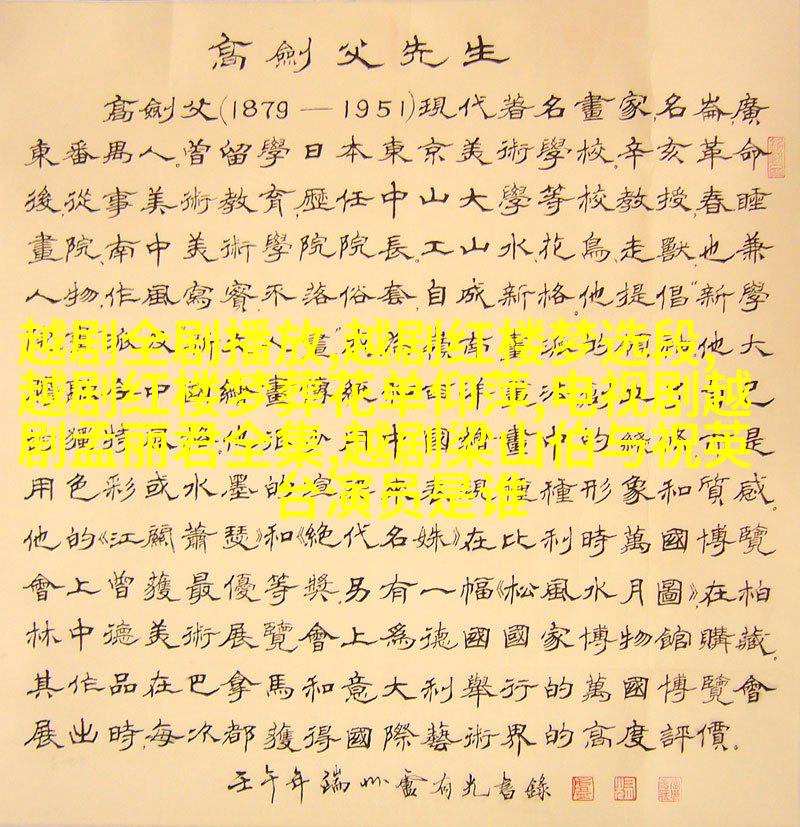 高劍父先生
高劍父(1879—1951)現代著名畫家,名崙,廣
東番禺人。曾留學日本東京美術學校,辛亥革命
後,從事美術教育,歷任中山大學等校教授,春睡
畫院、南中美術學院院長。工山水、花鳥、走獸,也兼
人物,作風寫實,不落俗套,自成新格。他提倡“新學
越剧全剧播放,越剧红楼梦选段,
越剧红楼梦葬花单仰萍,电视剧越
剧孟丽君全集,越剧梁山伯与祝英
台演员是谁
用色彩或水墨的渲染來表現種種形象和質感。
他的《江關蕭瑟》和《絕代名姝》在比利時萬國博覽
會上曾獲最優等獎,另有一幅《松風水月圖》,在柏
林中德美術展覽會上為德國國家博物館購藏。
其作品在巴拿馬和意大利舉行的萬國博覽會
展出時,每次都獲得國際藝術界的高度評價。
壬午年端州盧有光書錄